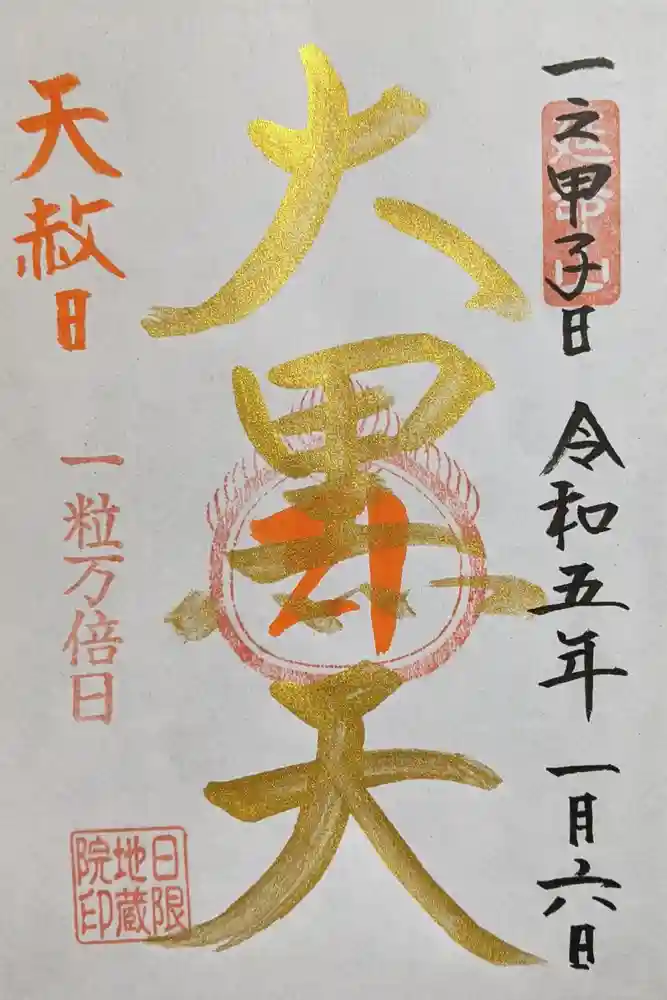 一之甲子日 令和五年 一月六日
大黒天
卯
天赦日
一粒万倍日
日限
地蔵
院印